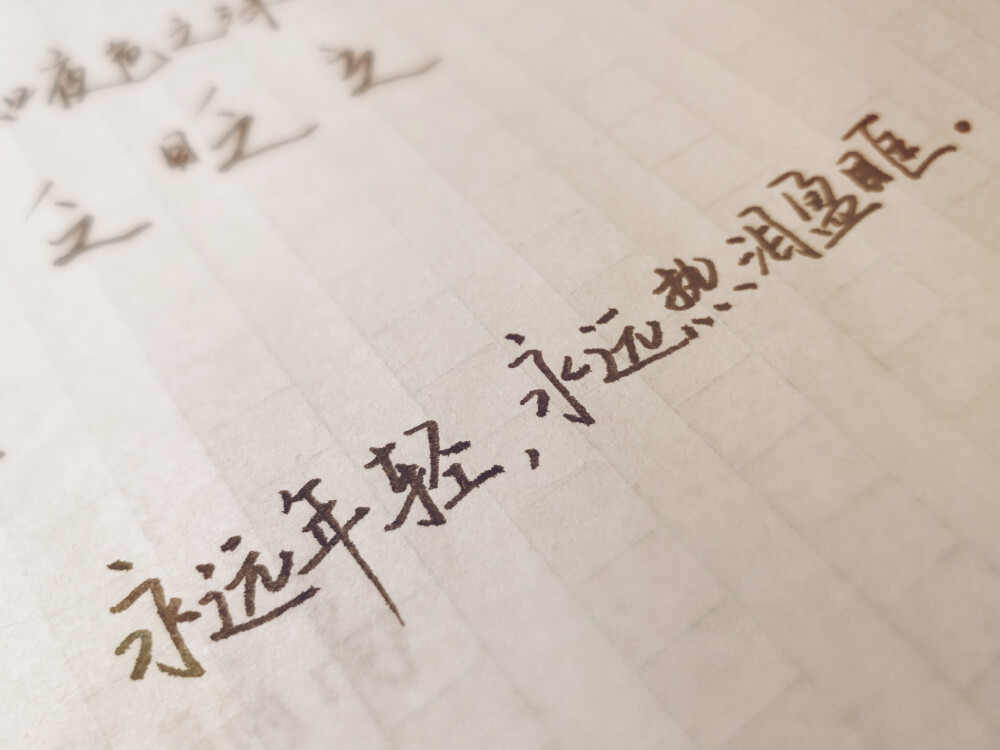 夜色之
之
永远年轻，永远热泪盈眶.